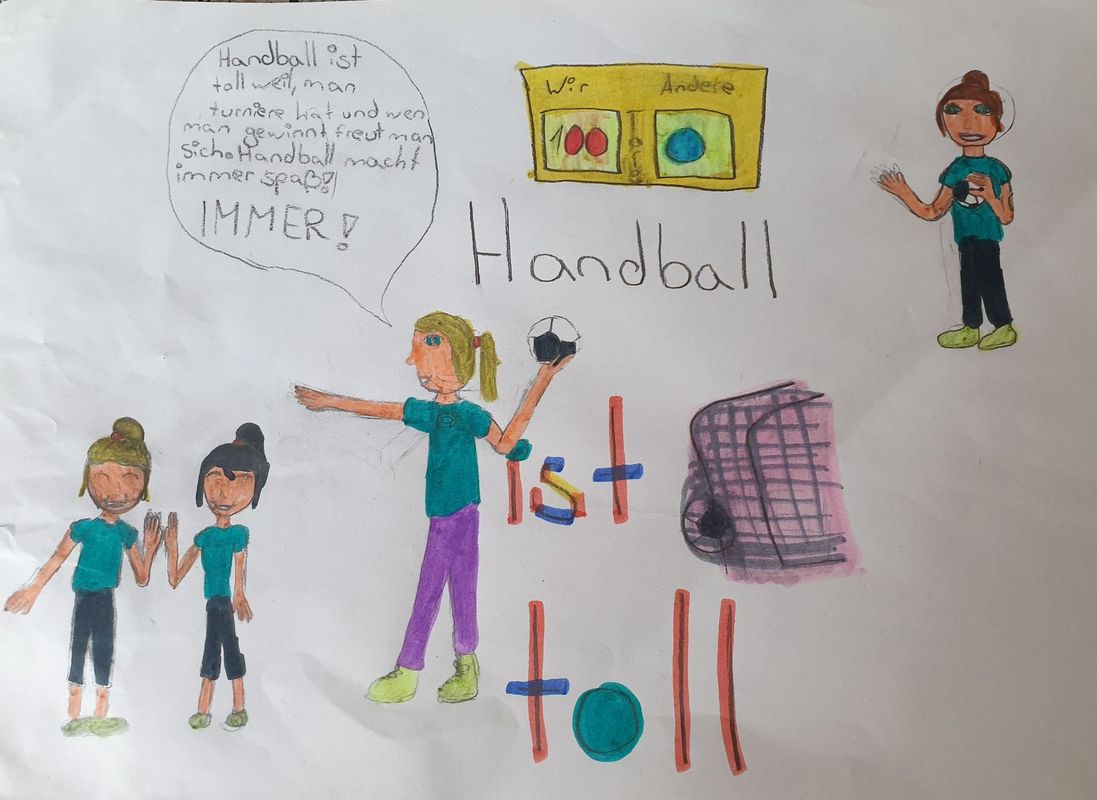 Handball ist
toll weil, man
turniere hat und wen
man gewinnt freut man
sich. Handball macht
immer spaß!
IMMER!
Wir Andere
100 0
Tore
Handball
ist
toll